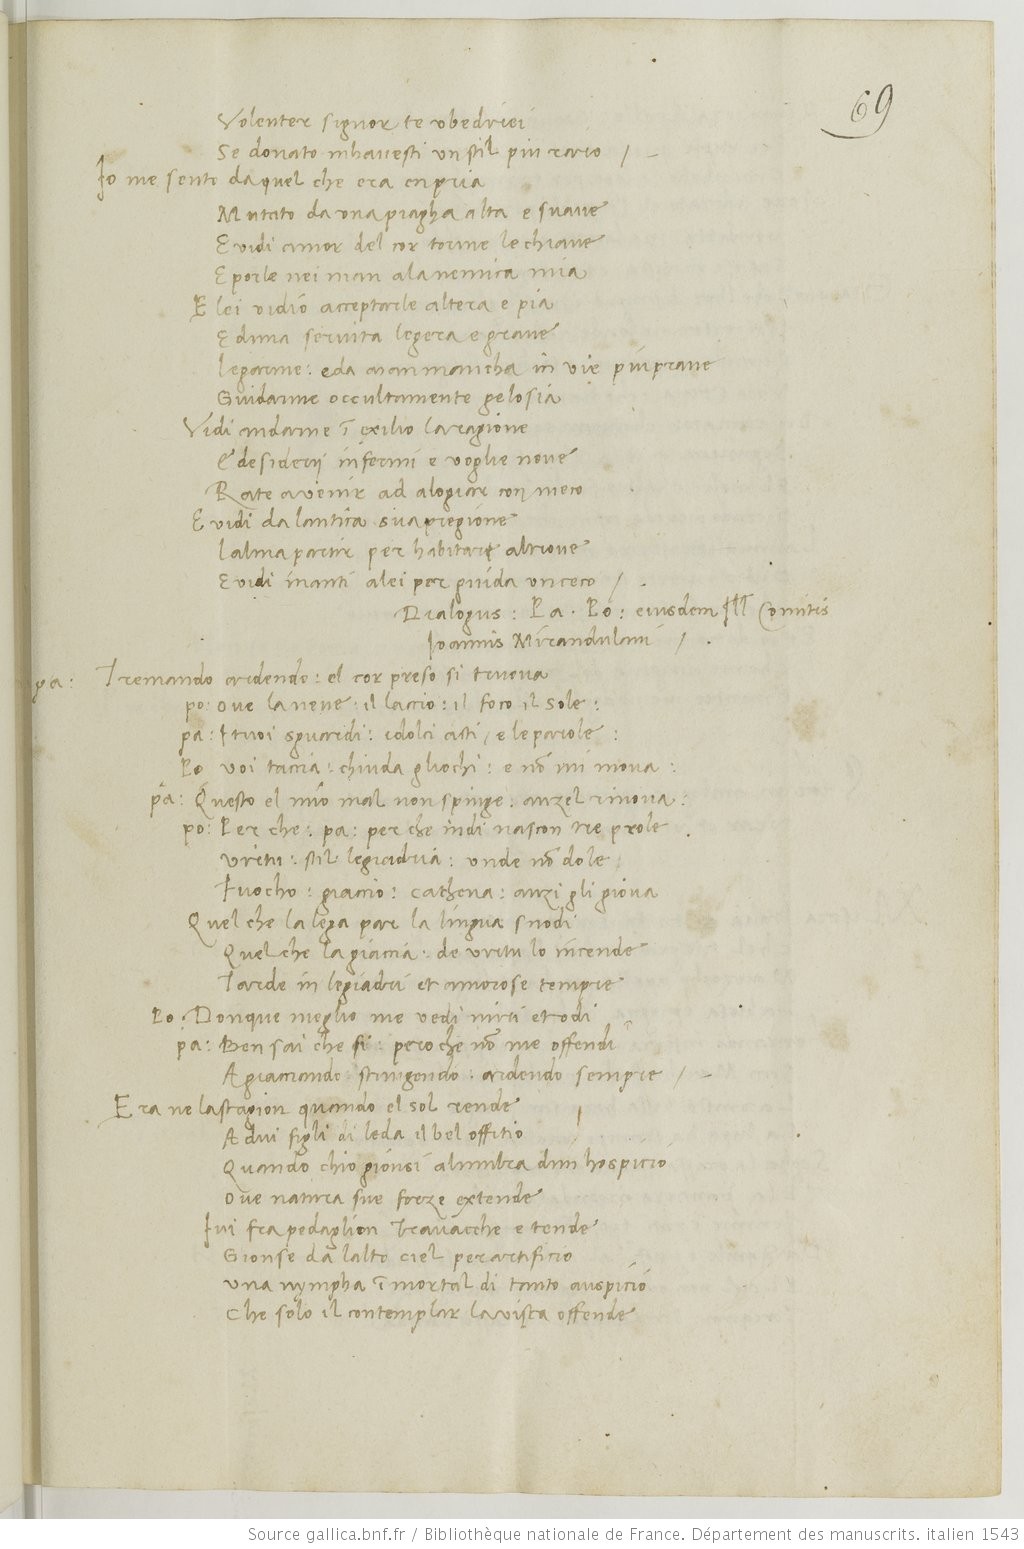 69
Volenter signor te vbedriei
Se donato mhauesti vn stil piu raro /
Io me sento da quel che era en pria
Mutato da vna piagha alta e suaue
E vidi amor del cor torme le chiaue
E porle nei man a la nemica mia
E lei vidio acceptarle altera e pia
E duna seruita legera e graue
legarme: e da man mancha in vie piu praue
Guidarme occultamente gelosia
Vidi andarne ī exilio la ragione
E desiderij infermi e voglie noue
Rate a venir ad alogiar con meco
E vidi da lantica sua pregione
lalma partir per habitare altroue
E vidi inanti a lei per guida vn ceco /
Dialogus: Pa. Po: eiusdem Ill Comitis
Ioannis Mirandulani /
pa: Tremando ardendo: el cor preso si truoua
po: oue la neue: il laccio: il foco il sole:
pa: I tuoi sguardi: e dolci atti, e le parole:
Po voi taccia: chiuda gliochi: e nō mi moua:
pa: Questo el mio mal non spinge. anzel rinoua:
po: Per che. pa: per che indi nascon tre prole.
vrtu: stil legiadria: vnde nō dole
Fuocho: giaccio: cathena: anzi gli gioua
Quel che la lega par la lingua snodi
Quel che la giaccia: de vrtu lo incende
Tarde in legiadri et amorose tempre
Po: Donque meglio me vedi miri et odi
pa: Ben sai che si: pero che nō me offendi
Agiacciando stringendo. ardendo sempre /
Era ne la stagion quando el sol rende
A dui figli di leda il bel offitio
Quando chio gionsi a lumbra dun hospicio
oue natura sue forze extende
Iui fra pedaglion trauacche e tende
Gionse da lalto ciel per artificio
vna nympha ī mortal di tanto auspicio
Che solo il contemplar la vista offende
Source gallica.bnf.fr / Bibliothèque nationale de France. Département des manuscrits. italien 1543